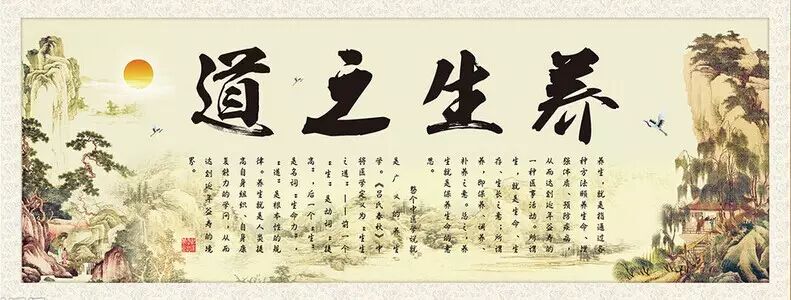 养生之道
养生,就是指通过各
种方法颐养生命、增
强体质、预防疾病,
从而达到延年益寿的
一种医事活动。所谓
生,就是生命、生
存、生长之意;所谓
养,即保养、调养、
补养之意。总之,养
生就是保养生命的意
思。
整个中医学说就
是广义的养生
学。《吕氏春秋》中
将医学定义为“生生
之道”——前一个
“生”是动词,“提
高”,后一个“生”
是名词“生命力”。
“道”是根本性的规
律。养生就是人类提
高自身组织、自身康
复能力的学问,从而
达到延年益寿的境
界。